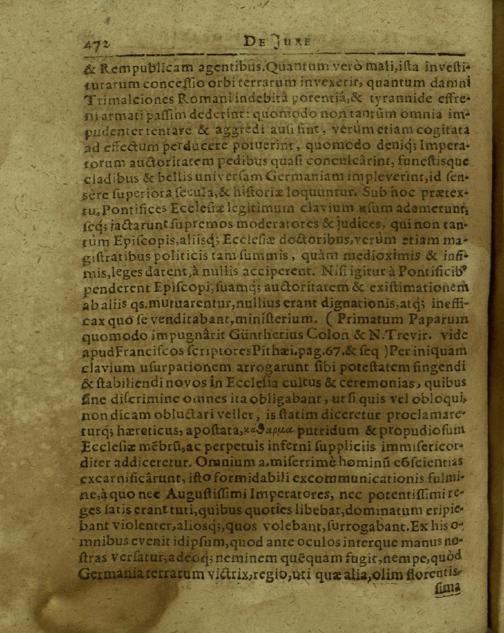 472 DE JURE
& Rempublicam agentibus. Quantum verò mali, ista investi-
turarum concessio orbi terrarum invexerit, quantum damni
Trimalciones Romani indebitâ potentiâ, & tyrannide effre-
ni armati passim dederint: quomodo non tantùm omnia im-
pudenter tentare & aggredi ausi sint, verùm etiam cogitata
ad effectum perducere potuerint, quomodo deniq; Impera-
torum auctoritatem pedibus quasi conculcârint, funestisque
cladibus & bellis universam Germaniam impleverint, id sen-
sere superiora secula, & historiæ loquuntur. Sub hoc prætex-
tu, Pontifices Ecclesiæ legitimum clavium usum ademerunt,
seq; jactarunt supremos moderatores & judices, qui non tan-
tùm Episcopis, aliisq; Ecclesiæ doctoribus, verùm etiam ma-
gistratibus politicis tam summis, quàm medioximis & infi-
mis, leges darent, à nullis acciperent. Nisi igitur à Pontificib9
penderent Episcopi, suamq; auctoritatem & existimationem
ab aliis qs. mutuarentur, nullius erant dignationis, atq; ineffi-
cax quo se venditabant, ministerium. ( Primatum Paparum
quomodo impugnârit Güntherius Colon & N. Trevir. vide
apud Franciscos scriptores Pithæi, pag. 67. & seq ) Per iniquam
clavium usurpationem arrogarunt sibi potestatem fingendi
& stabiliendi novos in Ecclesia cultus & ceremonias, quibus
sine discrimine omnes ita obligabant, ut si quis vel obloqui,
non dicam obluctari vellet, is statim diceretur proclamare-
turq; hæreticus, apostata, κάθαρμα putridum & propudiosum
Ecclesiæ mēbrũ, ac perpetuis inferni suppliciis immisericor-
diter addiceretur. Omnium a. miserrimè hominũ cõscientias
excarnificârunt, isto formidabili excommunicationis fulmi-
ne, à quo nec Augustissimi Imperatores, nec potentissimi re-
ges satis erant tuti, quibus quoties libebat, dominatum eripie-
bant violenter, aliosq;, quos volebant, surrogabant. Ex his o-
mnibus evenit id ipsum, quod ante oculos interque manus no-
stras versatur, adeoq; neminem quēquam fugit, nempe, quòd
Germania terrarum victrix, regio, uti quæ alia, olim florentis-
sima